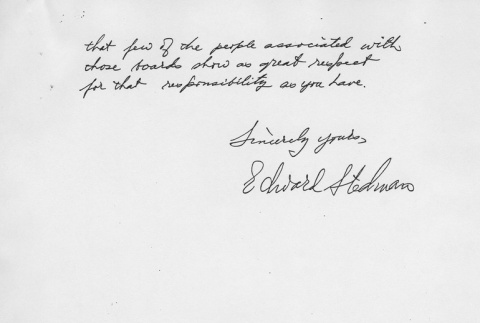 that few of the people associated with
those boards show as great respect
for that responsibility as you have.
Sincerely yours,
Edward Stedman